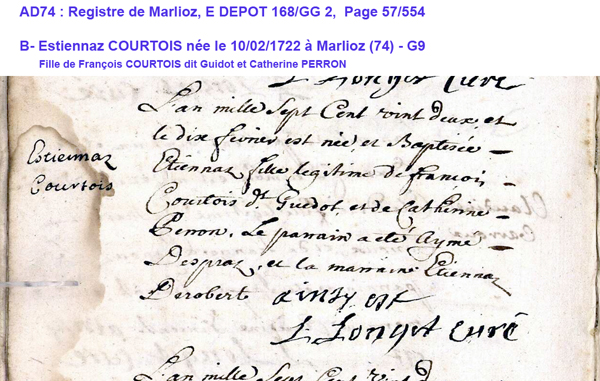 AD74 : Registre de Marlioz, E DEPOT 168/GG 2, Page 57/554
B- Estiennaz COURTOIS née le 10/02/1722 à Marlioz (74) - G9
Fille de François COURTOIS dit Guidot et Catherine PERRON
L Longet Curé
L'an mille Sept Cent vint deux, et
le dix fevrier est née et Baptisée
Estiennaz
Courtois
Etiennaz fille legitime de françois
Courtois dt Guedot, et de Catherine
Perron. Le parrain a eté Ayme
Despraz, et la marraine Etiennaz
Derobert ainsy est
L Longet Curé
L'an mille Sept Cent vint